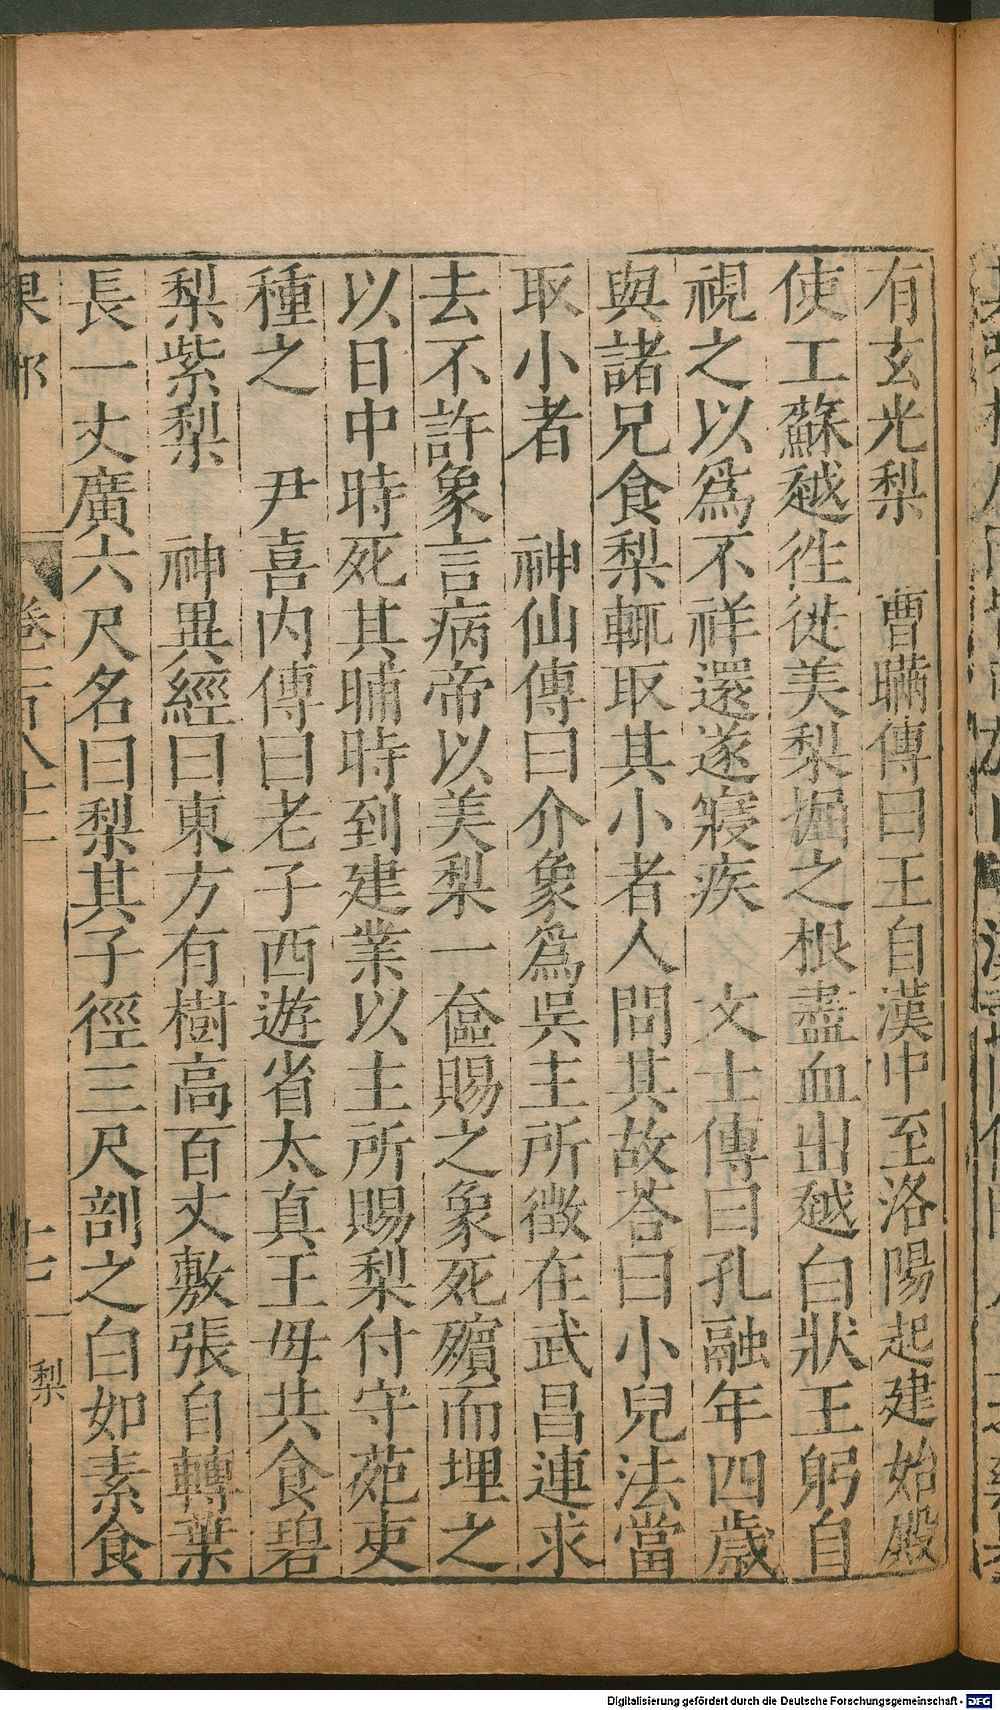 有玄光梨　曹瞞傳曰王自漢中至洛陽起建始殿
使工蘇越徃從美梨掘之根盡血出越白狀王躬自
視之以爲不祥還遂寢疾　文士傳曰孔融年四歲
與諸兄食梨輒取其小者人問其故荅曰小兒法當
取小者　神仙傳曰介象爲吳主所徵在武昌連求
去不許象言病帝以美梨一奩賜之象死殯而埋之
以日中時死其晡時到建業以主所賜梨付守苑吏
種之　尹喜内傳曰老子西遊省太真王母共食碧
梨紫梨　神異經曰東方有樹高百丈敷張自轉葉
長一丈廣六尺名曰梨其子徑三尺剖之白如素食
果部　卷一百八十二　十七　梨
Digitalisierung gefördert durch die Deutsche Forschungsgemeinschaft - DFG